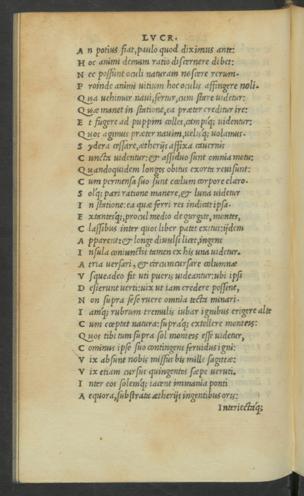 LVCR.
A n potius fiat, paulo quod diximus ante:
H oc animi demum ratio discernere debet:
N ec possunt oculi naturam noscere rerum.
P roinde animi uitium hoc oculis affingere noli.
Q ua uehimur naui, fertur, cum stare uidetur:
Q uæ manet in statione, ea præter creditur ire:
E t fugere ad puppim colles, campiq; uidentur:
Q uos agimus præter nauim, uelisq; uolamus.
S ydera cessare, ætherijs affixa cauernis
C uncta uidentur: & assiduo sunt omnia motu:
Q uandoquidem longos obitus exorta reuisunt:
C um permensa suo sunt cœlum corpore claro.
S olq; pari ratione manere, & luna uidetur
I n statione: ea quæ ferri res indicat ipsa.
E xtantesq; procul medio de gurgite, montes,
C lassibus inter quos liber patet exitus: ijdem
A pparent: & longe diuulsi licet, ingens
I nsula coniunctis tamen ex his una uidetur.
A tria uersari, & circumcursare columnæ
V sque adeo fit uti pueris uideantur: ubi ipsi
D esierunt uerti: uix ut iam credere possint,
N on supra sese ruere omnia tecta minari.
I amq; rubrum tremulis iubar ignibus erigere alte
C um cœptat natura: supraq; extollere monteis:
Q uos tibi tum supra sol monteis esse uidetur,
C ominus ipse suo contingens feruidus igni:
V ix absunt nobis missus bis mille sagittæ:
V ix etiam cursus quingentos sæpe ueruti.
I nter eos solemq; iacent immania ponti
A equora, substrata ætherijs ingentibus oris:
Interiectaq;